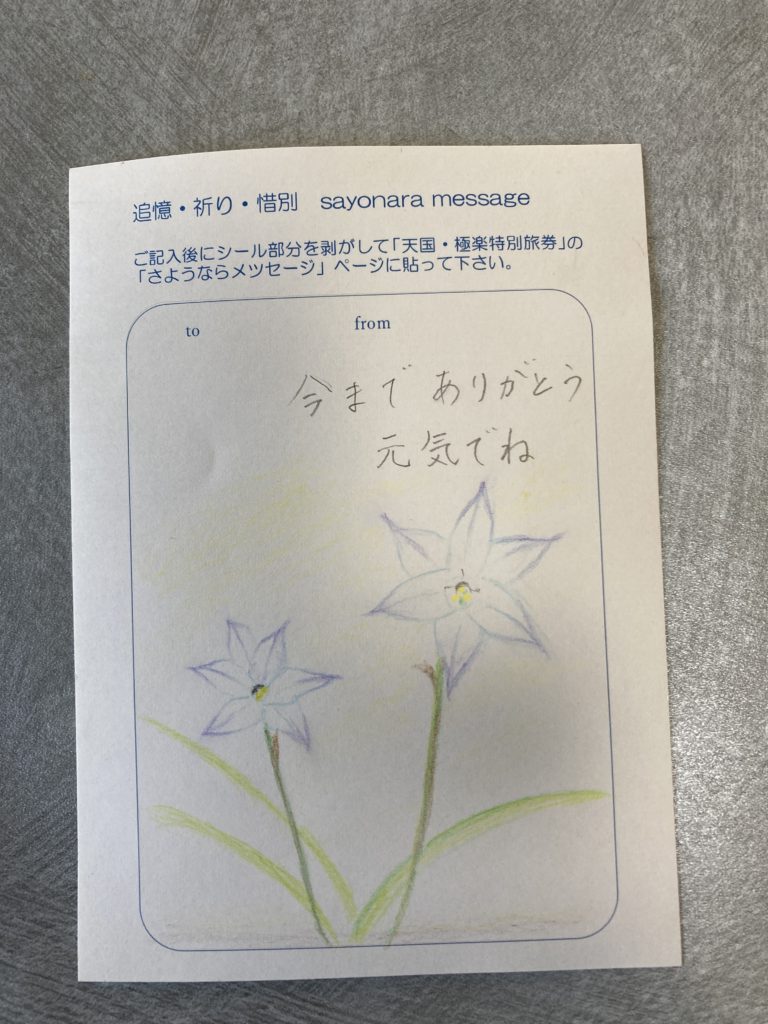 追憶・祈り・惜別 sayonara message
ご記入後にシール部分を剥がして「天国・極楽特別旅券」の
「さようならメツセージ」ページに貼って下さい。
to from
今まで ありがとう
元気でね